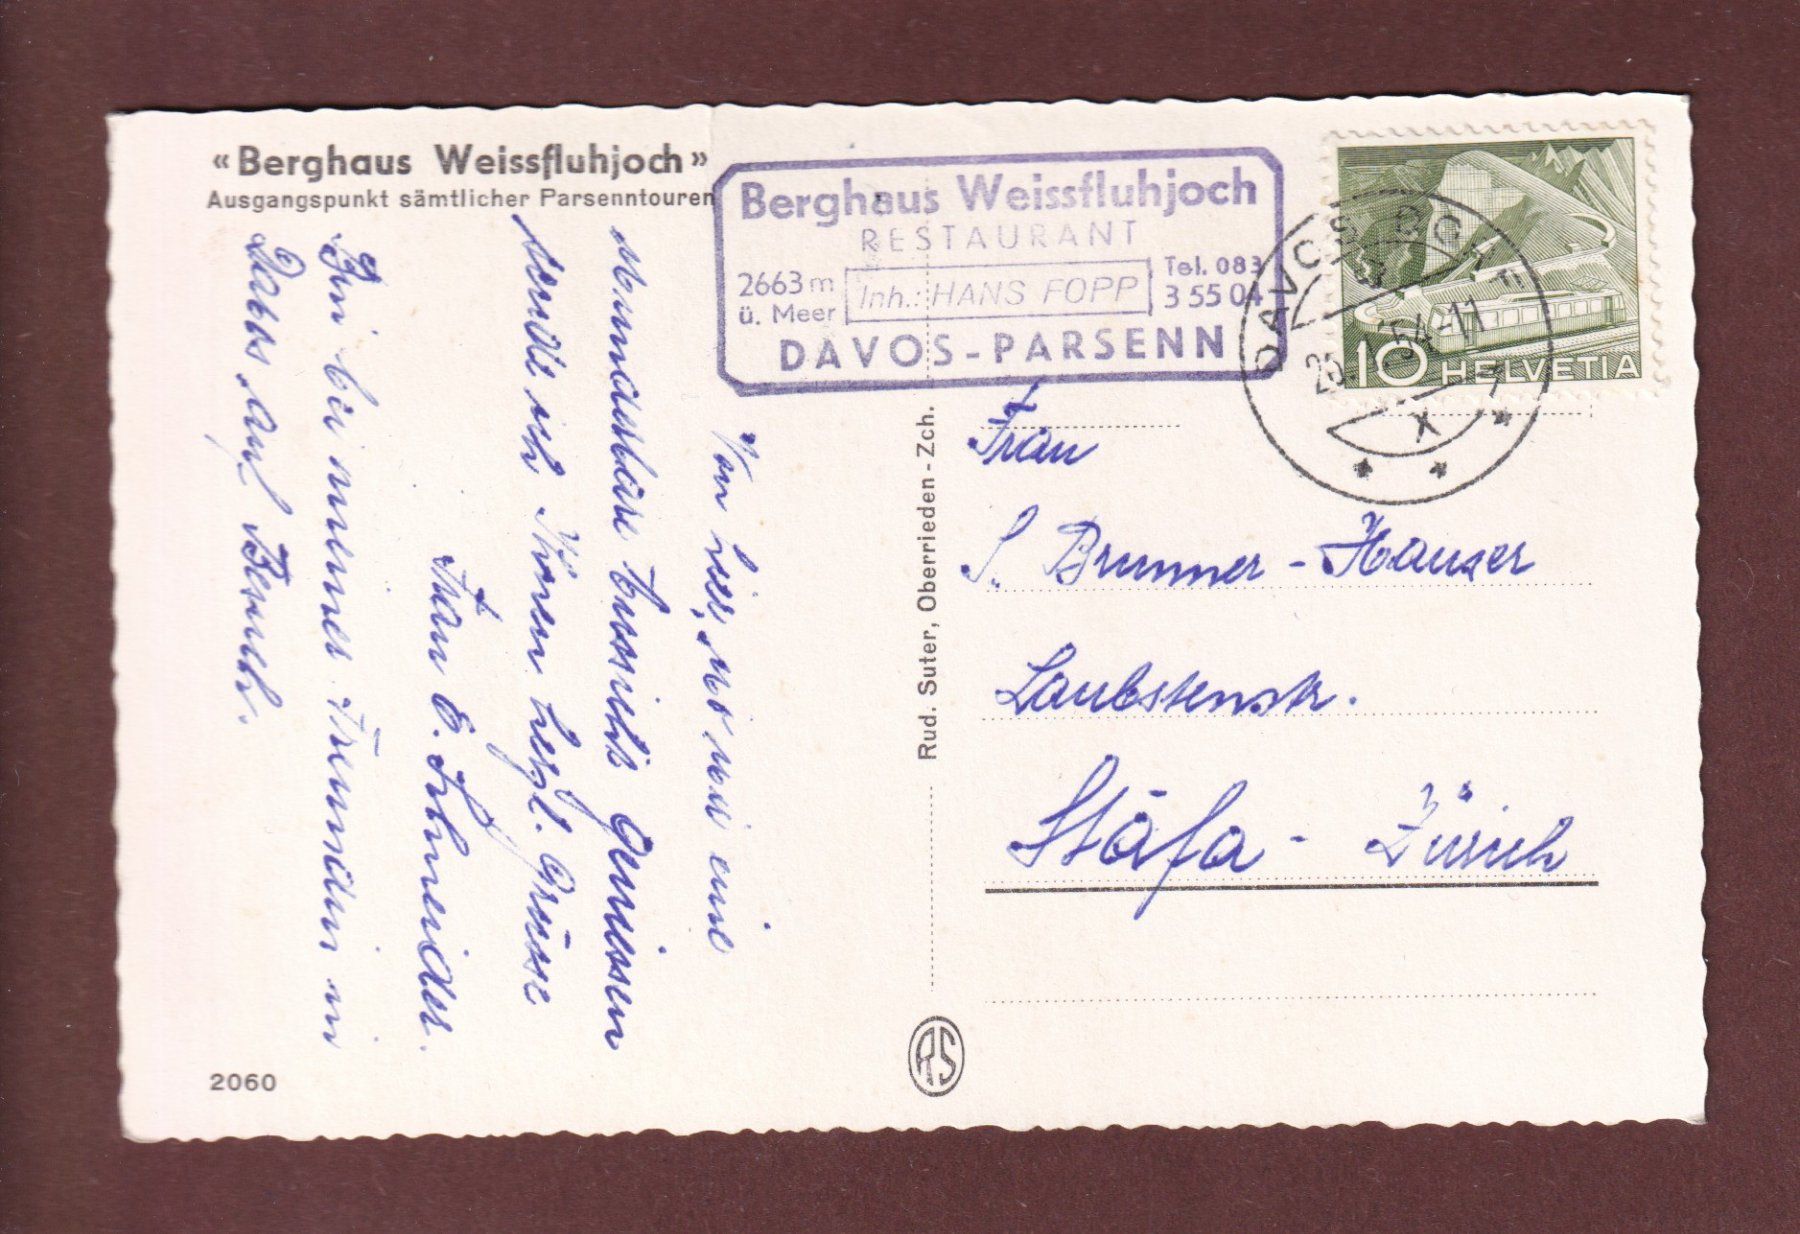 «Berghaus Weissfluhjoch»
Ausgangspunkt sämtlicher Parsenntouren
Berghaus Weissfluhjoch
RESTAURANT
2663 m
ü. Meer
Inh.: HANS FOPP
Tel. 083
3 55 04
DAVOS-PARSENN
DAVOS DORF
X
10 HELVETIA
Von hier, wo wir eine
wunderbare Aussicht geniessen
sende ich Ihnen herzl. Grüsse
Frau E. Schneider.
Bin bei meiner Freundin in
Davos auf Besuch.
Rud. Suter, Oberrieden-Zch.
Frau
S. Brunner-Hauser
Laubstenstr.
Stäfa - Zürich
RS
2060